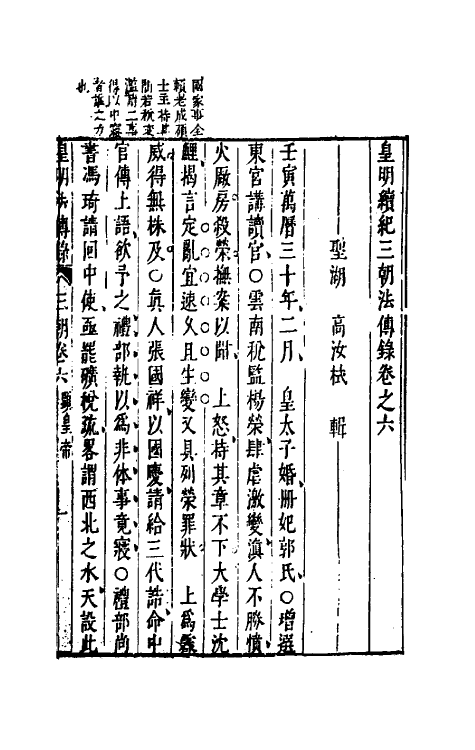 皇明續紀三朝法傳錄卷之六
聖湖　高汝栻　輯
壬寅萬曆三十年二月　皇太子婚冊妃郭氏○增選
東宮講讀官○雲南稅監楊榮肆虐激變滇人不勝憤
火厰房殺榮撫案以聞　上怒持其章不下大學士沈
鯉揭言定亂宜速久且生變又具列榮罪狀　上爲霽
威得無株及○眞人張國祥以國慶請給三代誥命中
官傳上語欲予之禮部執以爲非体事竟寢○禮部尚
書馮琦請囘中使亟罷礦稅疏畧謂西北之水天設此
國家事全
賴老成碩
士主持其
間若稅変
濫封二事
得以中寢
者誰之力
也
皇明法傳錄　三朝卷六　顯皇帝　一